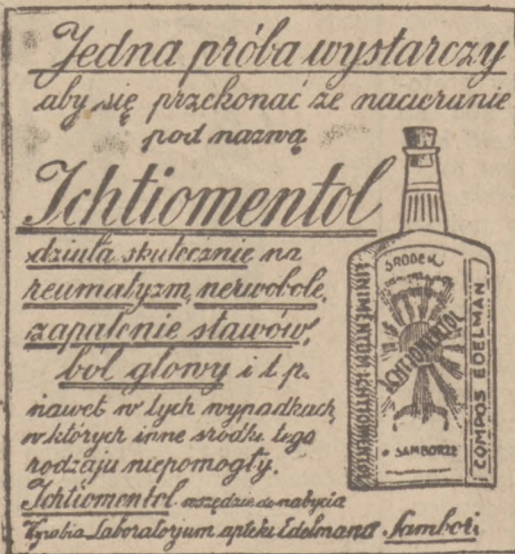 Jedna próba wystarczy
aby się przekonać że nacieranie
pod nazwą
Ichtiomentol
działa skutecznie na
reumatyzm, nerwobole,
zapalenie stawów,
ból głowy i t. p.
nawet w tych wypadkach
w których inne środki tego
rodzaju niepomogły.
Ichtiomentol wszędzie do nabycia
Wyrobia Laboratorjum apteki Edelmana Sambor
ŚRODEK
ICHTIOMENTOL
SAMBORZE
LINIMENTUM ICHTIOMENTOL
COMPOS EDELMAN